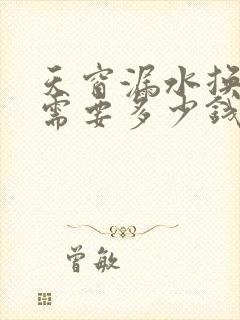 天窗漏水换
需要多少钱
曾敏